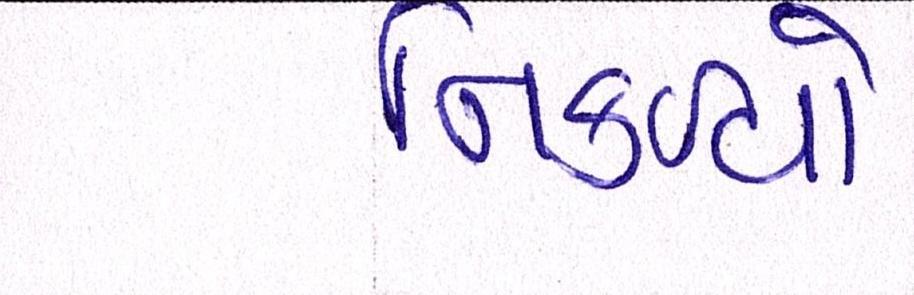 નિકળ્યો